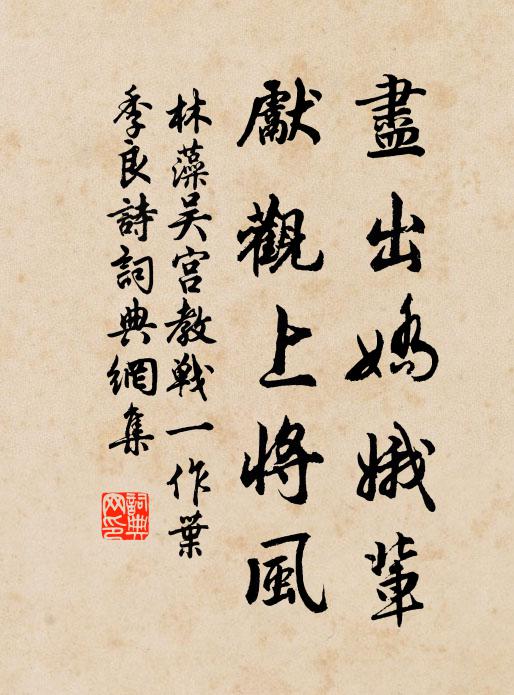 盡出嬌娥輩
獻觀上將風
林藻吴宮教戰一作葉
季良詩詞典網集
詞典网印